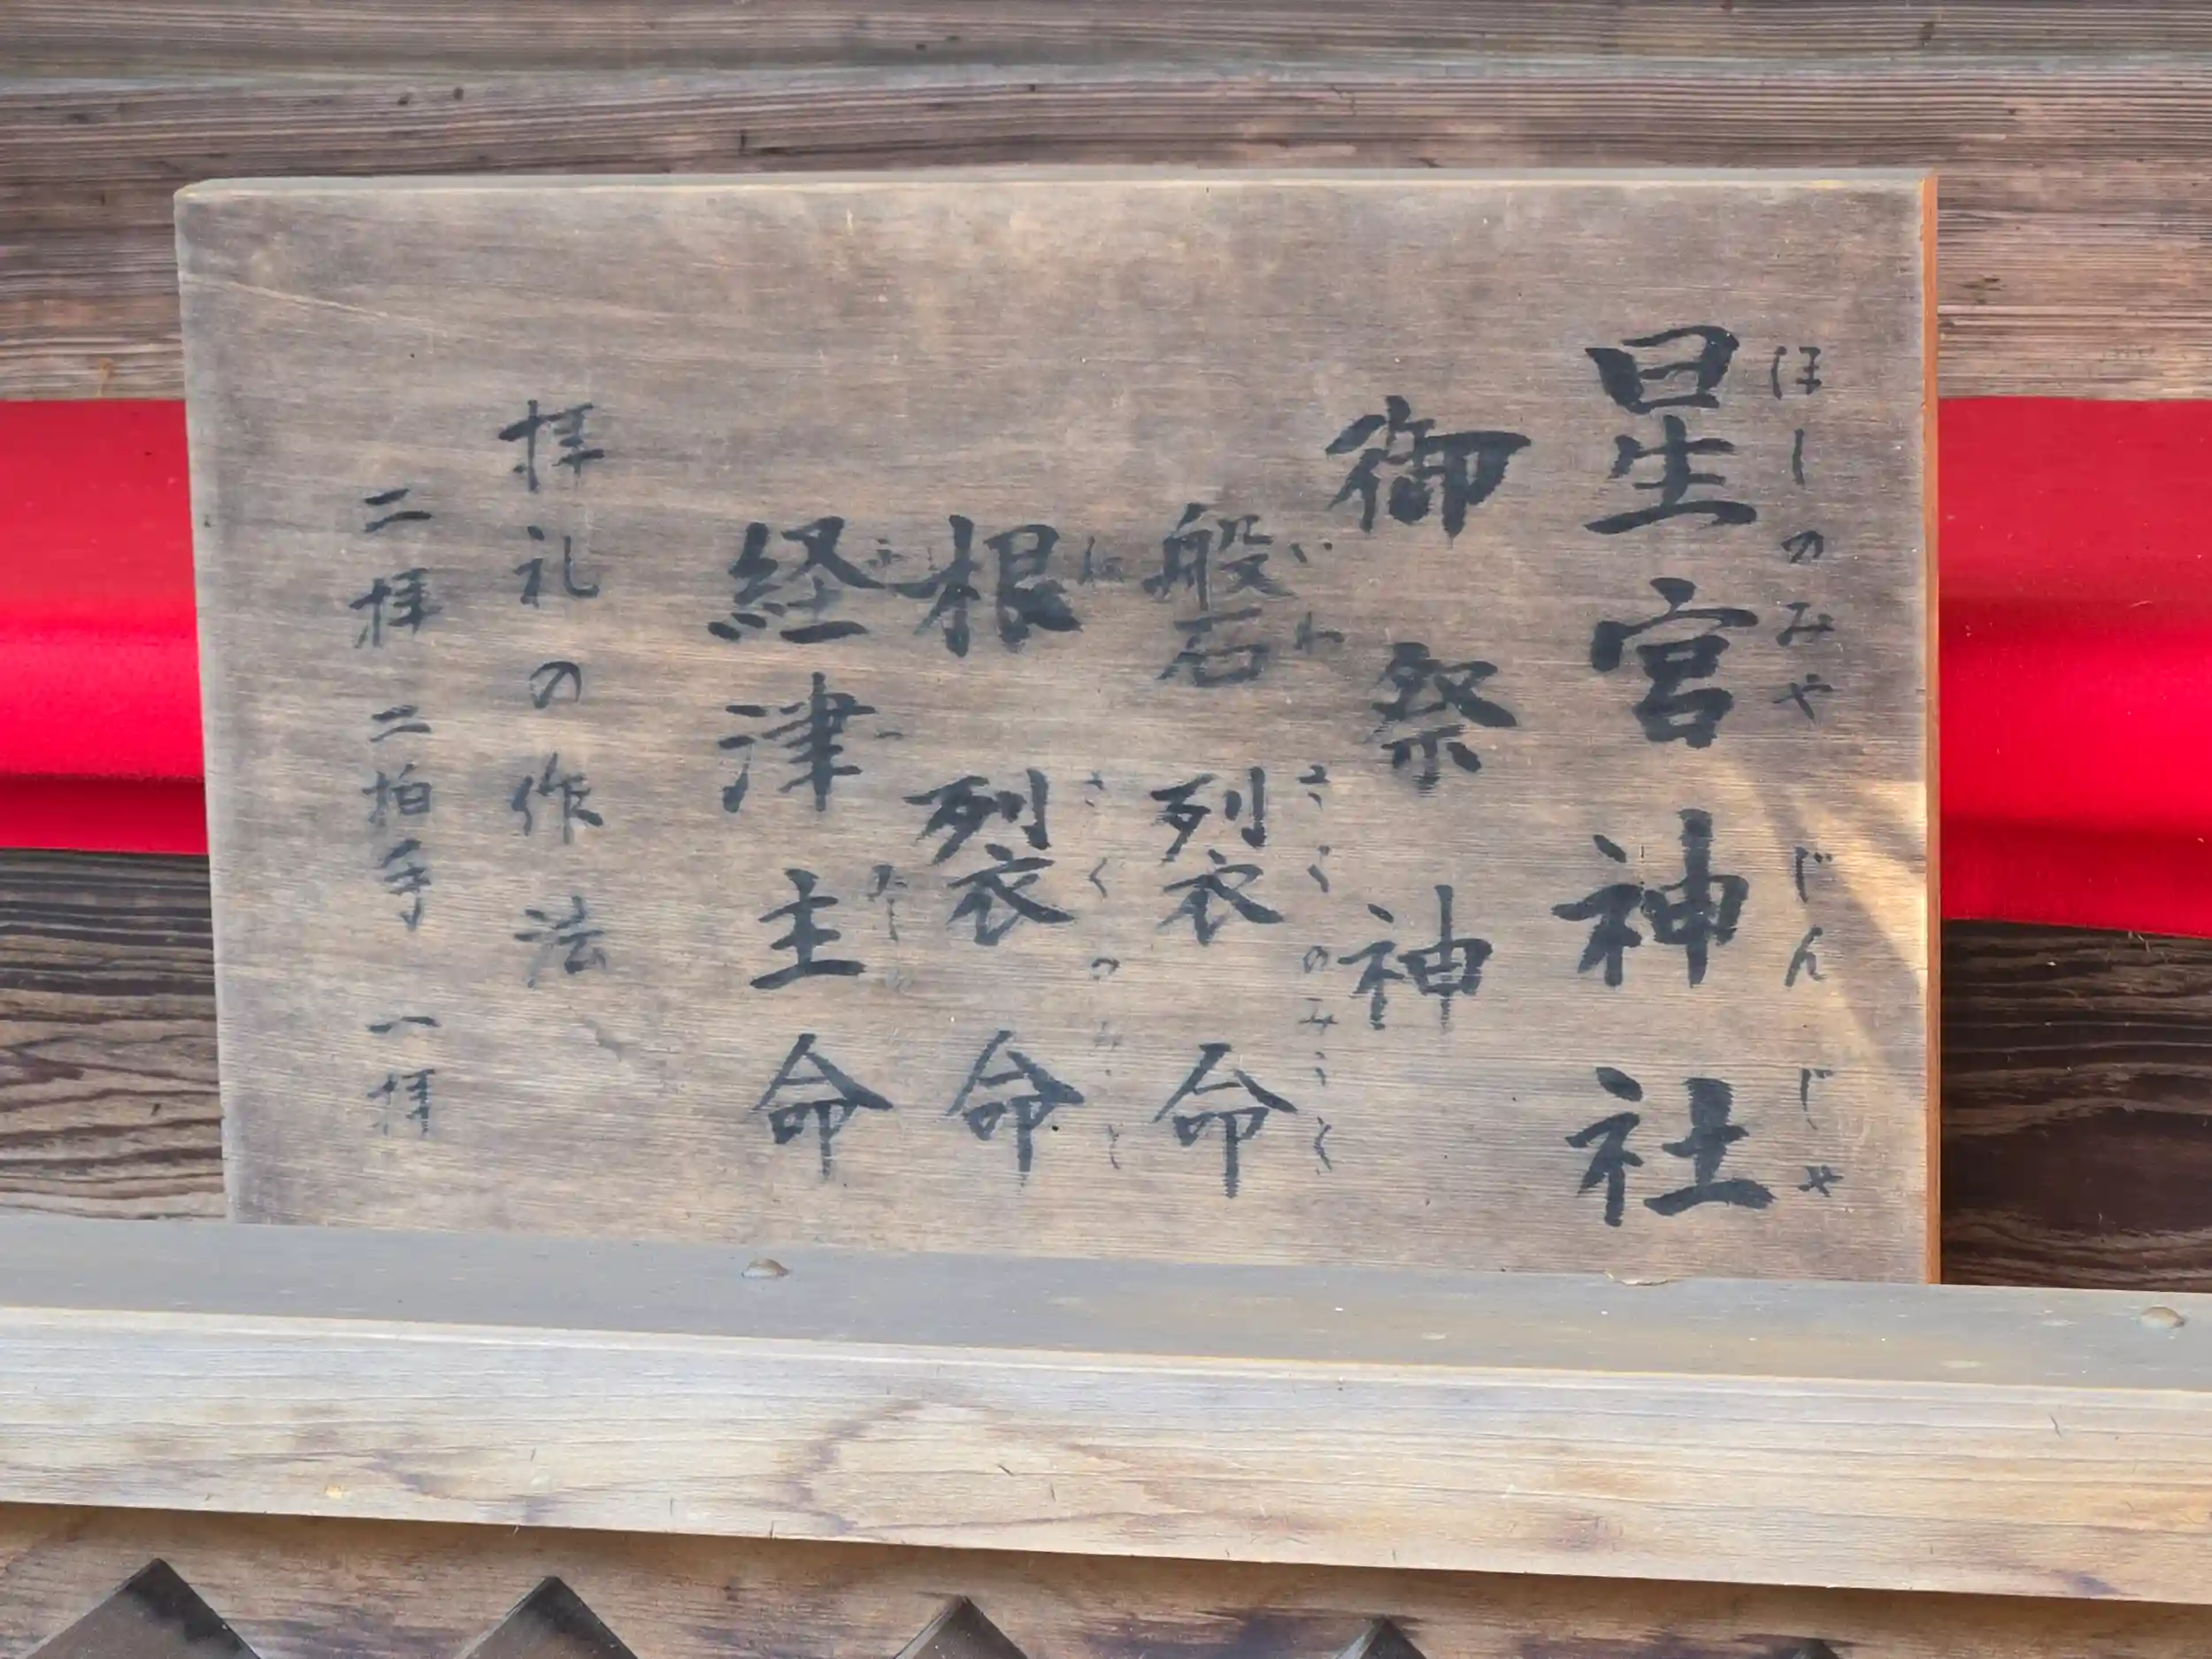 星宮神社
ほしのみやじんじゃ
御祭神
磐裂命
いわさくのみこと
根裂命
ねさくのみこと
経津主命
拝礼の作法
二拝二拍手一拝